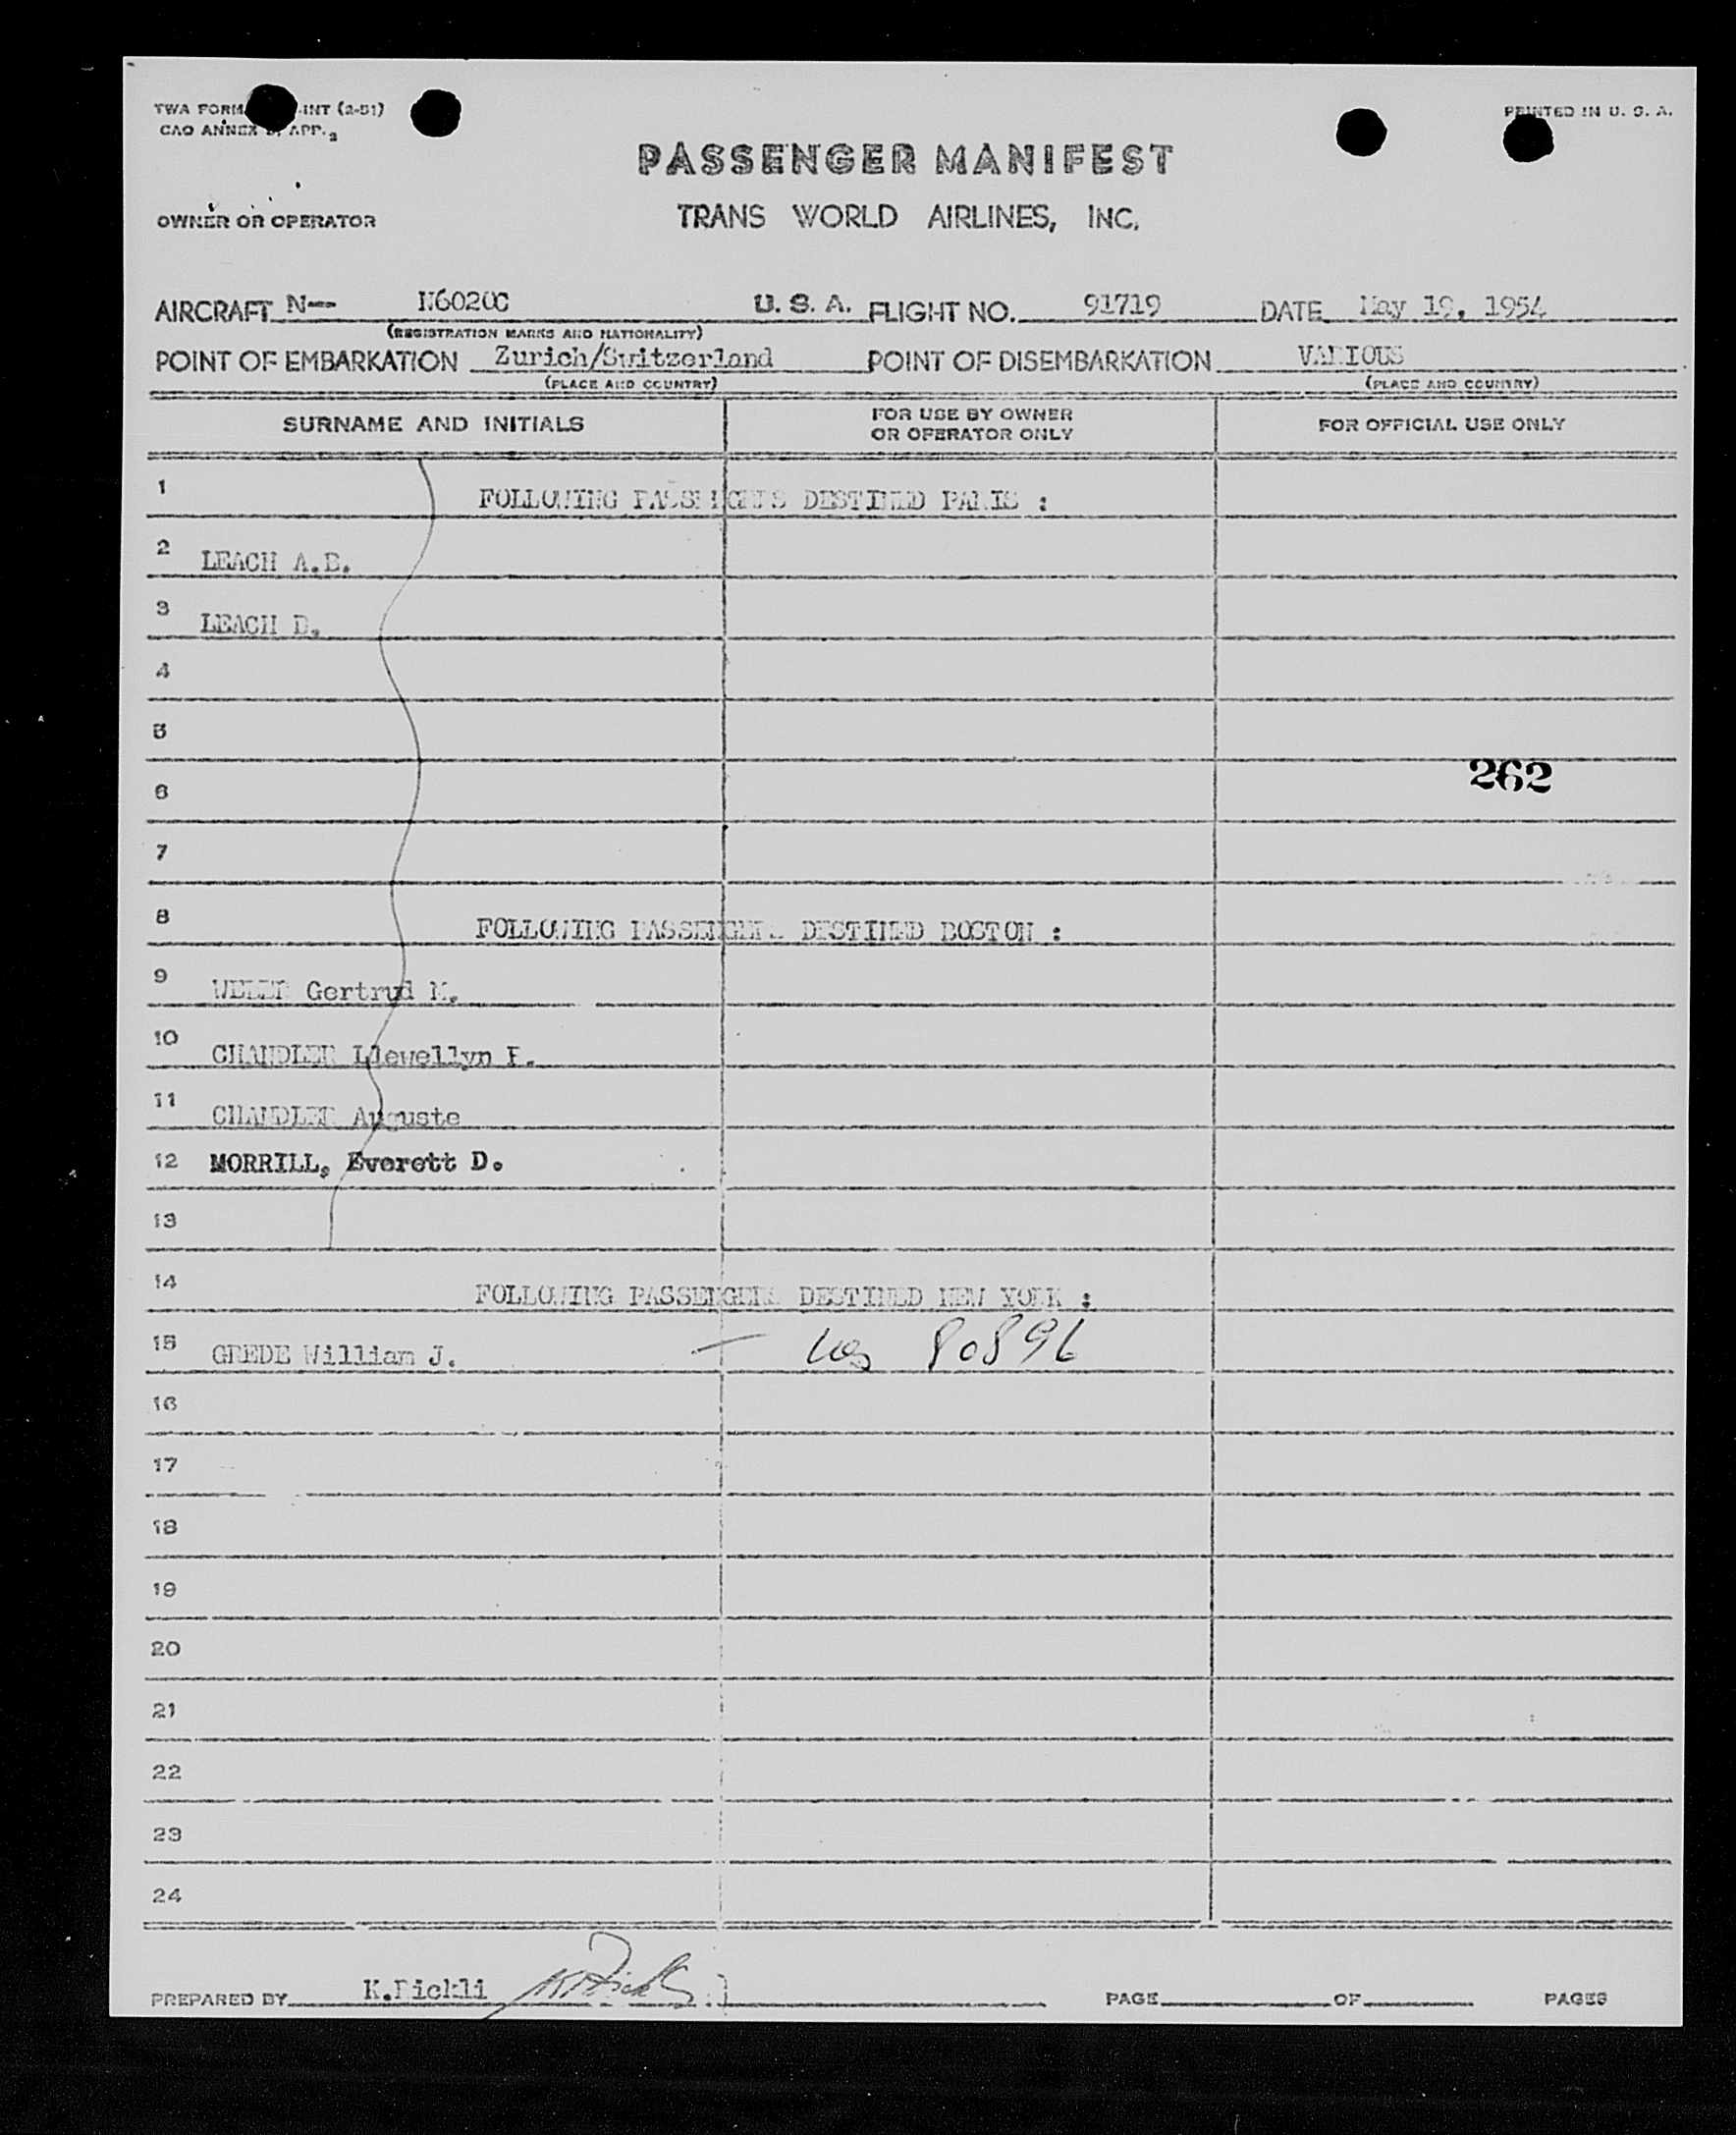 TWA FORM -INT (2-51)
CAO ANNEX APP. 2
PRINTED IN U. S. A.
PASSENGER MANIFEST
OWNER OR OPERATOR
TRANS WORLD AIRLINES, INC.
AIRCRAFT N-- N6020C U. S. A. FLIGHT NO. 91719 DATE May 19, 1954
(REGISTRATION MARKS AND NATIONALITY)
POINT OF EMBARKATION Zurich/Switzerland POINT OF DISEMBARKATION VARIOUS
(PLACE AND COUNTRY) (PLACE AND COUNTRY)
SURNAME AND INITIALS FOR USE BY OWNER OR OPERATOR ONLY FOR OFFICIAL USE ONLY
1 FOLLOWING PASSENGERS DESTINED PARIS :
2 LEACH
3 LEACH
4
5
262
6
7
8 FOLLOWING PASSENGERS DESTINED BOSTON :
9 Gertrud M.
10 CHANDLER Llewellyn
11 CHANDLER Auguste
12 MORRILL, Everett D.
13
14 FOLLOWING PASSENGERS DESTINED NEW YORK :
15 GREDE William J. — 80896
16
17
18
19
20
21
22
23
24
PREPARED BY PAGE OF PAGES